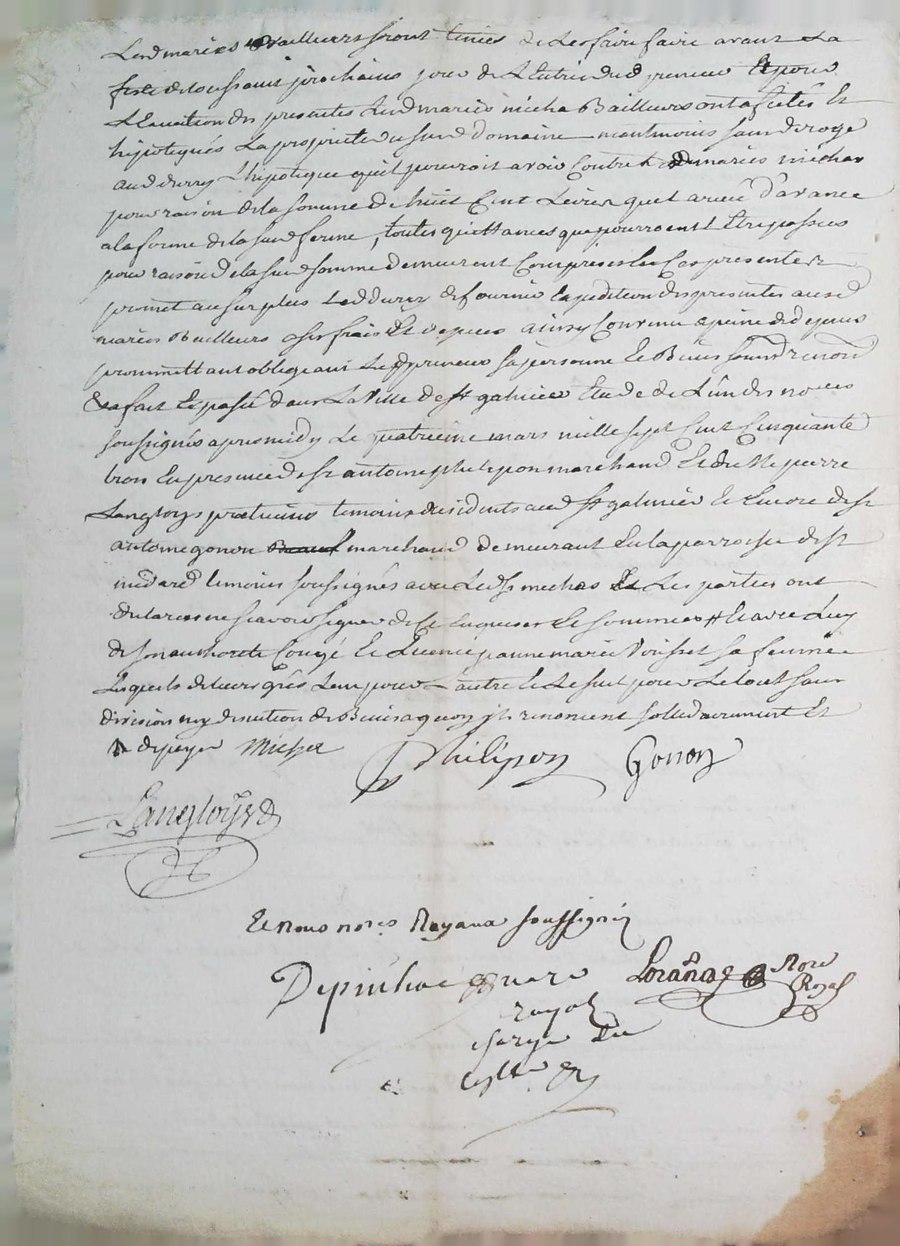 Lesd mariés Bailliers seront tenus de les faire faire avant La
feste de toussaint prochains jour de L'entrée dud preneur Et pour
L'Execution des presentes Lesd mariés micha Bailleurs ont afectés Et
hipotequés La proprieté dususd domaine neantmoins sans deroger
aud durey L'hipoteque qu'il pouvoit avoir Contre lesd mariés michar
pour raison de la somme de huit Cent Livres quil a d'avance
a la forme de la susd ferme, toutes quittances que pourroient Etre passées
pour raison de la susd somme demeurent Comprises En Ces presentes
promet au surplus Led durey de fournir Expedition des presentes ausd
mariés Bailleurs a ses frais Et depens ainsy Convenu a peine de depens
promettant obligeant Led preneur sa personne Et Biens soumd renond
fait Et passé dans La Ville de st galmier Etude de L'un des nores
soussignés apres midy Le quatrieme mars mille sept Cent Cinquante
trois En presence de sr antoine philipon marchand Et de Me pierre
Langloys praticien temoins residents aud st galmier Et Encore de sr
antoine gonon marchand demeurant En la parroisse de st
medard temoins soussignés avec Led sr micha Les parties ont
declaré ne scavoir signer de ce Enquises Et sommées # Et avec Luy
de son authorité Congé Et Licence jeanne marie Voisset sa femme
Lesquels de leurs grés L'un pour L'autre Et Le seul pour Le tout sans
division ny discution de Biens a quoy ils renoncent sollidairement Et
de payer Micha Philipon Gonon
Langloys
Et Nous nores Royaux soussignés
Depinhac nore Loranas Nore
royal Royal